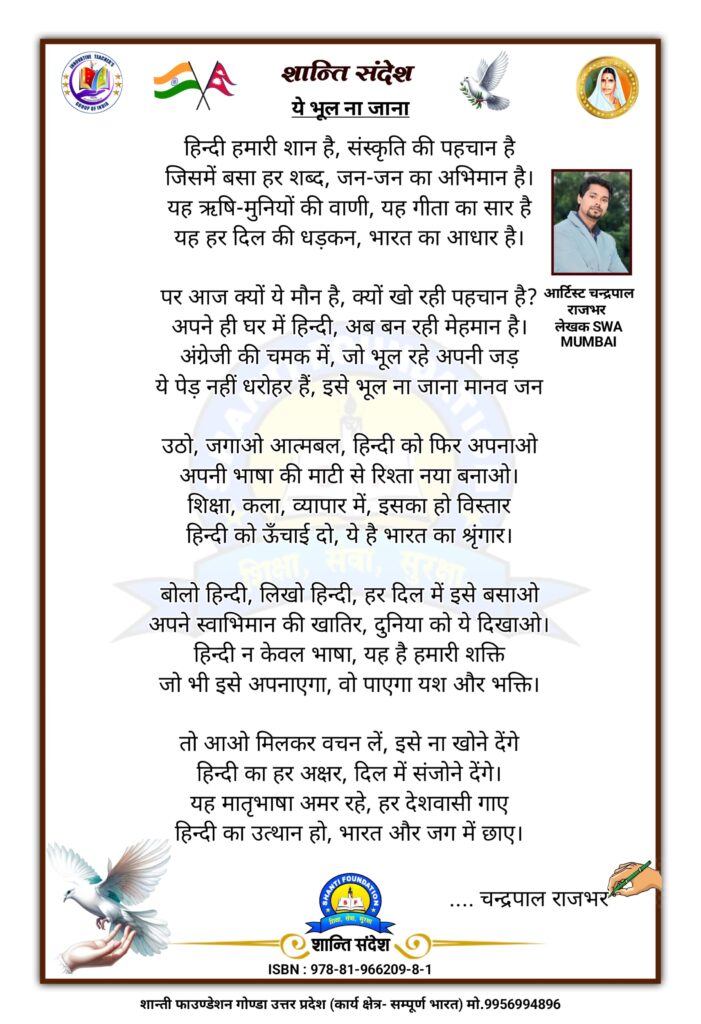 INNOVATIVE TEACHER'S
GROUP OF INDIA
शान्ति संदेश
ये भूल ना जाना
हिन्दी हमारी शान है, संस्कृति की पहचान है
जिसमें बसा हर शब्द, जन-जन का अभिमान है।
यह ऋषि-मुनियों की वाणी, यह गीता का सार है
यह हर दिल की धड़कन, भारत का आधार है।
आर्टिस्ट चन्द्रपाल
राजभर
लेखक SWA
MUMBAI
पर आज क्यों ये मौन है, क्यों खो रही पहचान है?
अपने ही घर में हिन्दी, अब बन रही मेहमान है।
अंग्रेजी की चमक में, जो भूल रहे अपनी जड़
ये पेड़ नहीं धरोहर हैं, इसे भूल ना जाना मानव जन
उठो, जगाओ आत्मबल, हिन्दी को फिर अपनाओ
अपनी भाषा की माटी से रिश्ता नया बनाओ।
शिक्षा, कला, व्यापार में, इसका हो विस्तार
हिन्दी को ऊँचाई दो, ये है भारत का श्रृंगार।
बोलो हिन्दी, लिखो हिन्दी, हर दिल में इसे बसाओ
अपने स्वाभिमान की खातिर, दुनिया को ये दिखाओ।
हिन्दी न केवल भाषा, यह है हमारी शक्ति
जो भी इसे अपनाएगा, वो पाएगा यश और भक्ति।
तो आओ मिलकर वचन लें, इसे ना खोने देंगे
हिन्दी का हर अक्षर, दिल में संजोने देंगे।
यह मातृभाषा अमर रहे, हर देशवासी गाए
हिन्दी का उत्थान हो, भारत और जग में छाए।
.... चन्द्रपाल राजभर
SHANTI FOUNDATION
S F
शिक्षा, सेवा, सुरक्षा
शान्ति संदेश
ISBN : 978-81-966209-8-1
शान्ती फाउण्डेशन गोण्डा उत्तर प्रदेश (कार्य क्षेत्र- सम्पूर्ण भारत) मो.9956994896